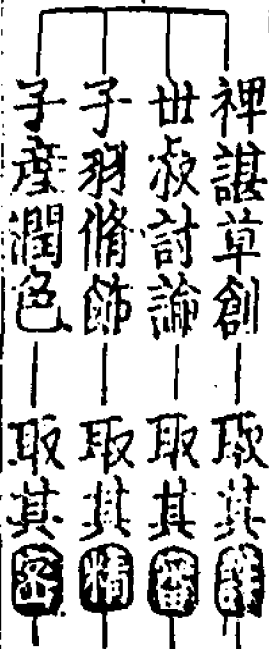 裨諶草創
取其詳
世叔討論
取其審
子羽脩飾
取其精
子產潤色
取其密